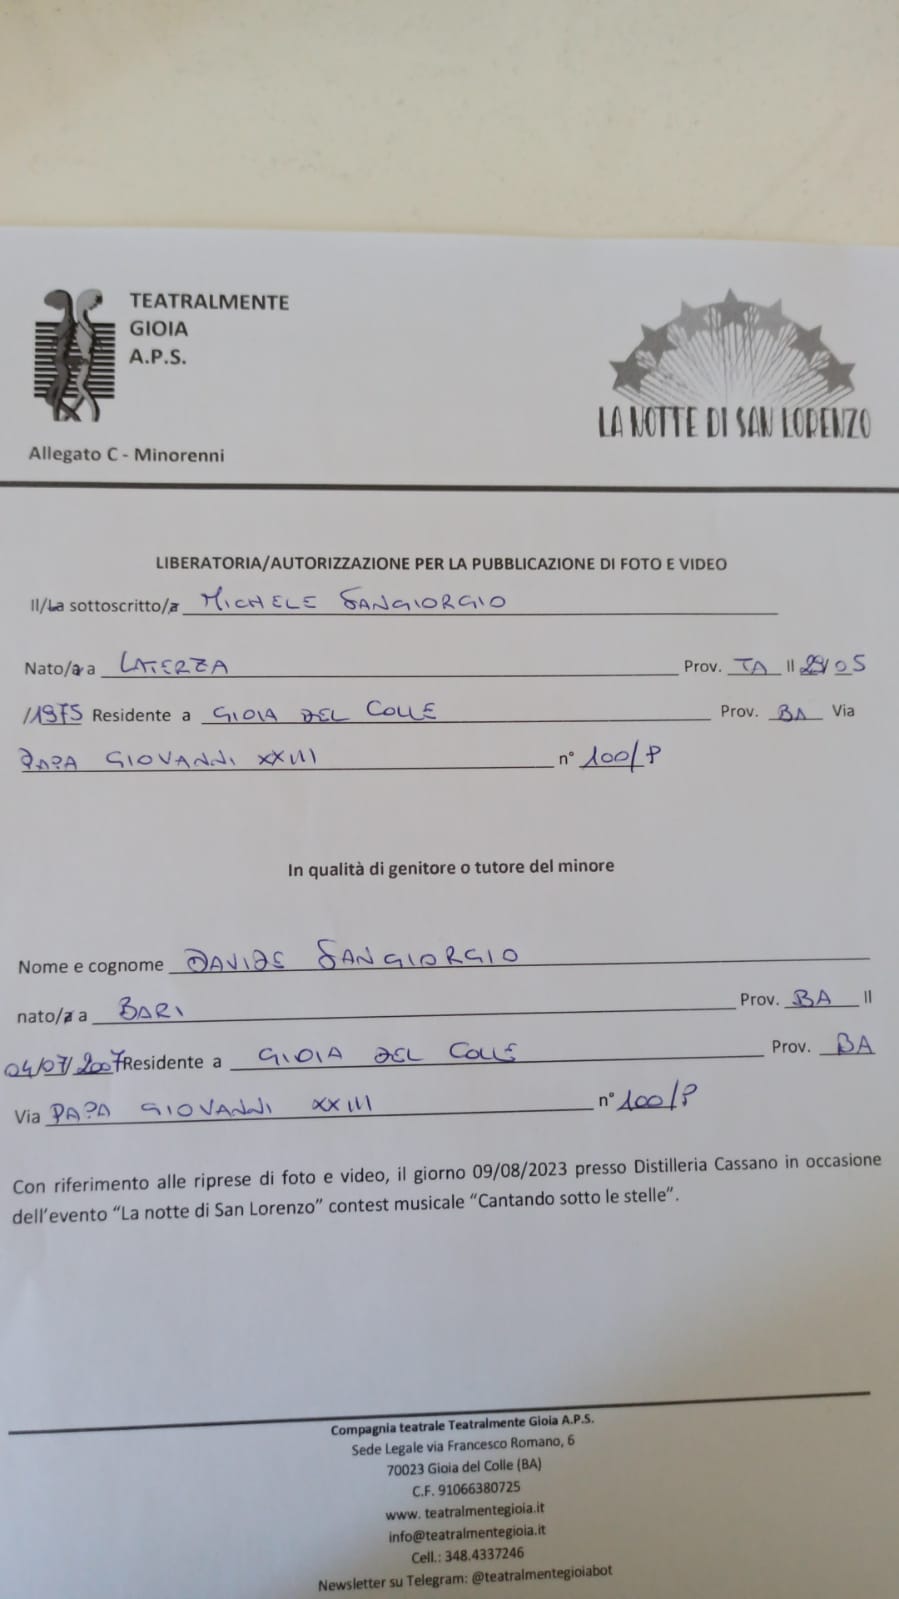 TEATRALMENTE
GIOIA
A.P.S.
LA NOTTE DI SAN LORENZO
Allegato C - Minorenni
LIBERATORIA/AUTORIZZAZIONE PER LA PUBBLICAZIONE DI FOTO E VIDEO
Il/La sottoscritto/a MICHELE SANGIORGIO
Nato/a a LATERZA Prov. TA Il 29/05
/1975 Residente a GIOIA DEL COLLE Prov. BA Via
PAPA GIOVANNI XXIII n° 100/P
In qualità di genitore o tutore del minore
Nome e cognome DAVIDE SANGIORGIO
nato/a a BARI Prov. BA Il
04/07/2007 Residente a GIOIA DEL COLLE Prov. BA
Via PAPA GIOVANNI XXIII n° 100/P
Con riferimento alle riprese di foto e video, il giorno 09/08/2023 presso Distilleria Cassano in occasione
dell'evento “La notte di San Lorenzo” contest musicale “Cantando sotto le stelle”.
Compagnia teatrale Teatralmente Gioia A.P.S.
Sede Legale via Francesco Romano, 6
70023 Gioia del Colle (BA)
C.F. 91066380725
www. teatralmentegioia.it
info@teatralmentegioia.it
Cell.: 348.4337246
Newsletter su Telegram: @teatralmentegioiabot